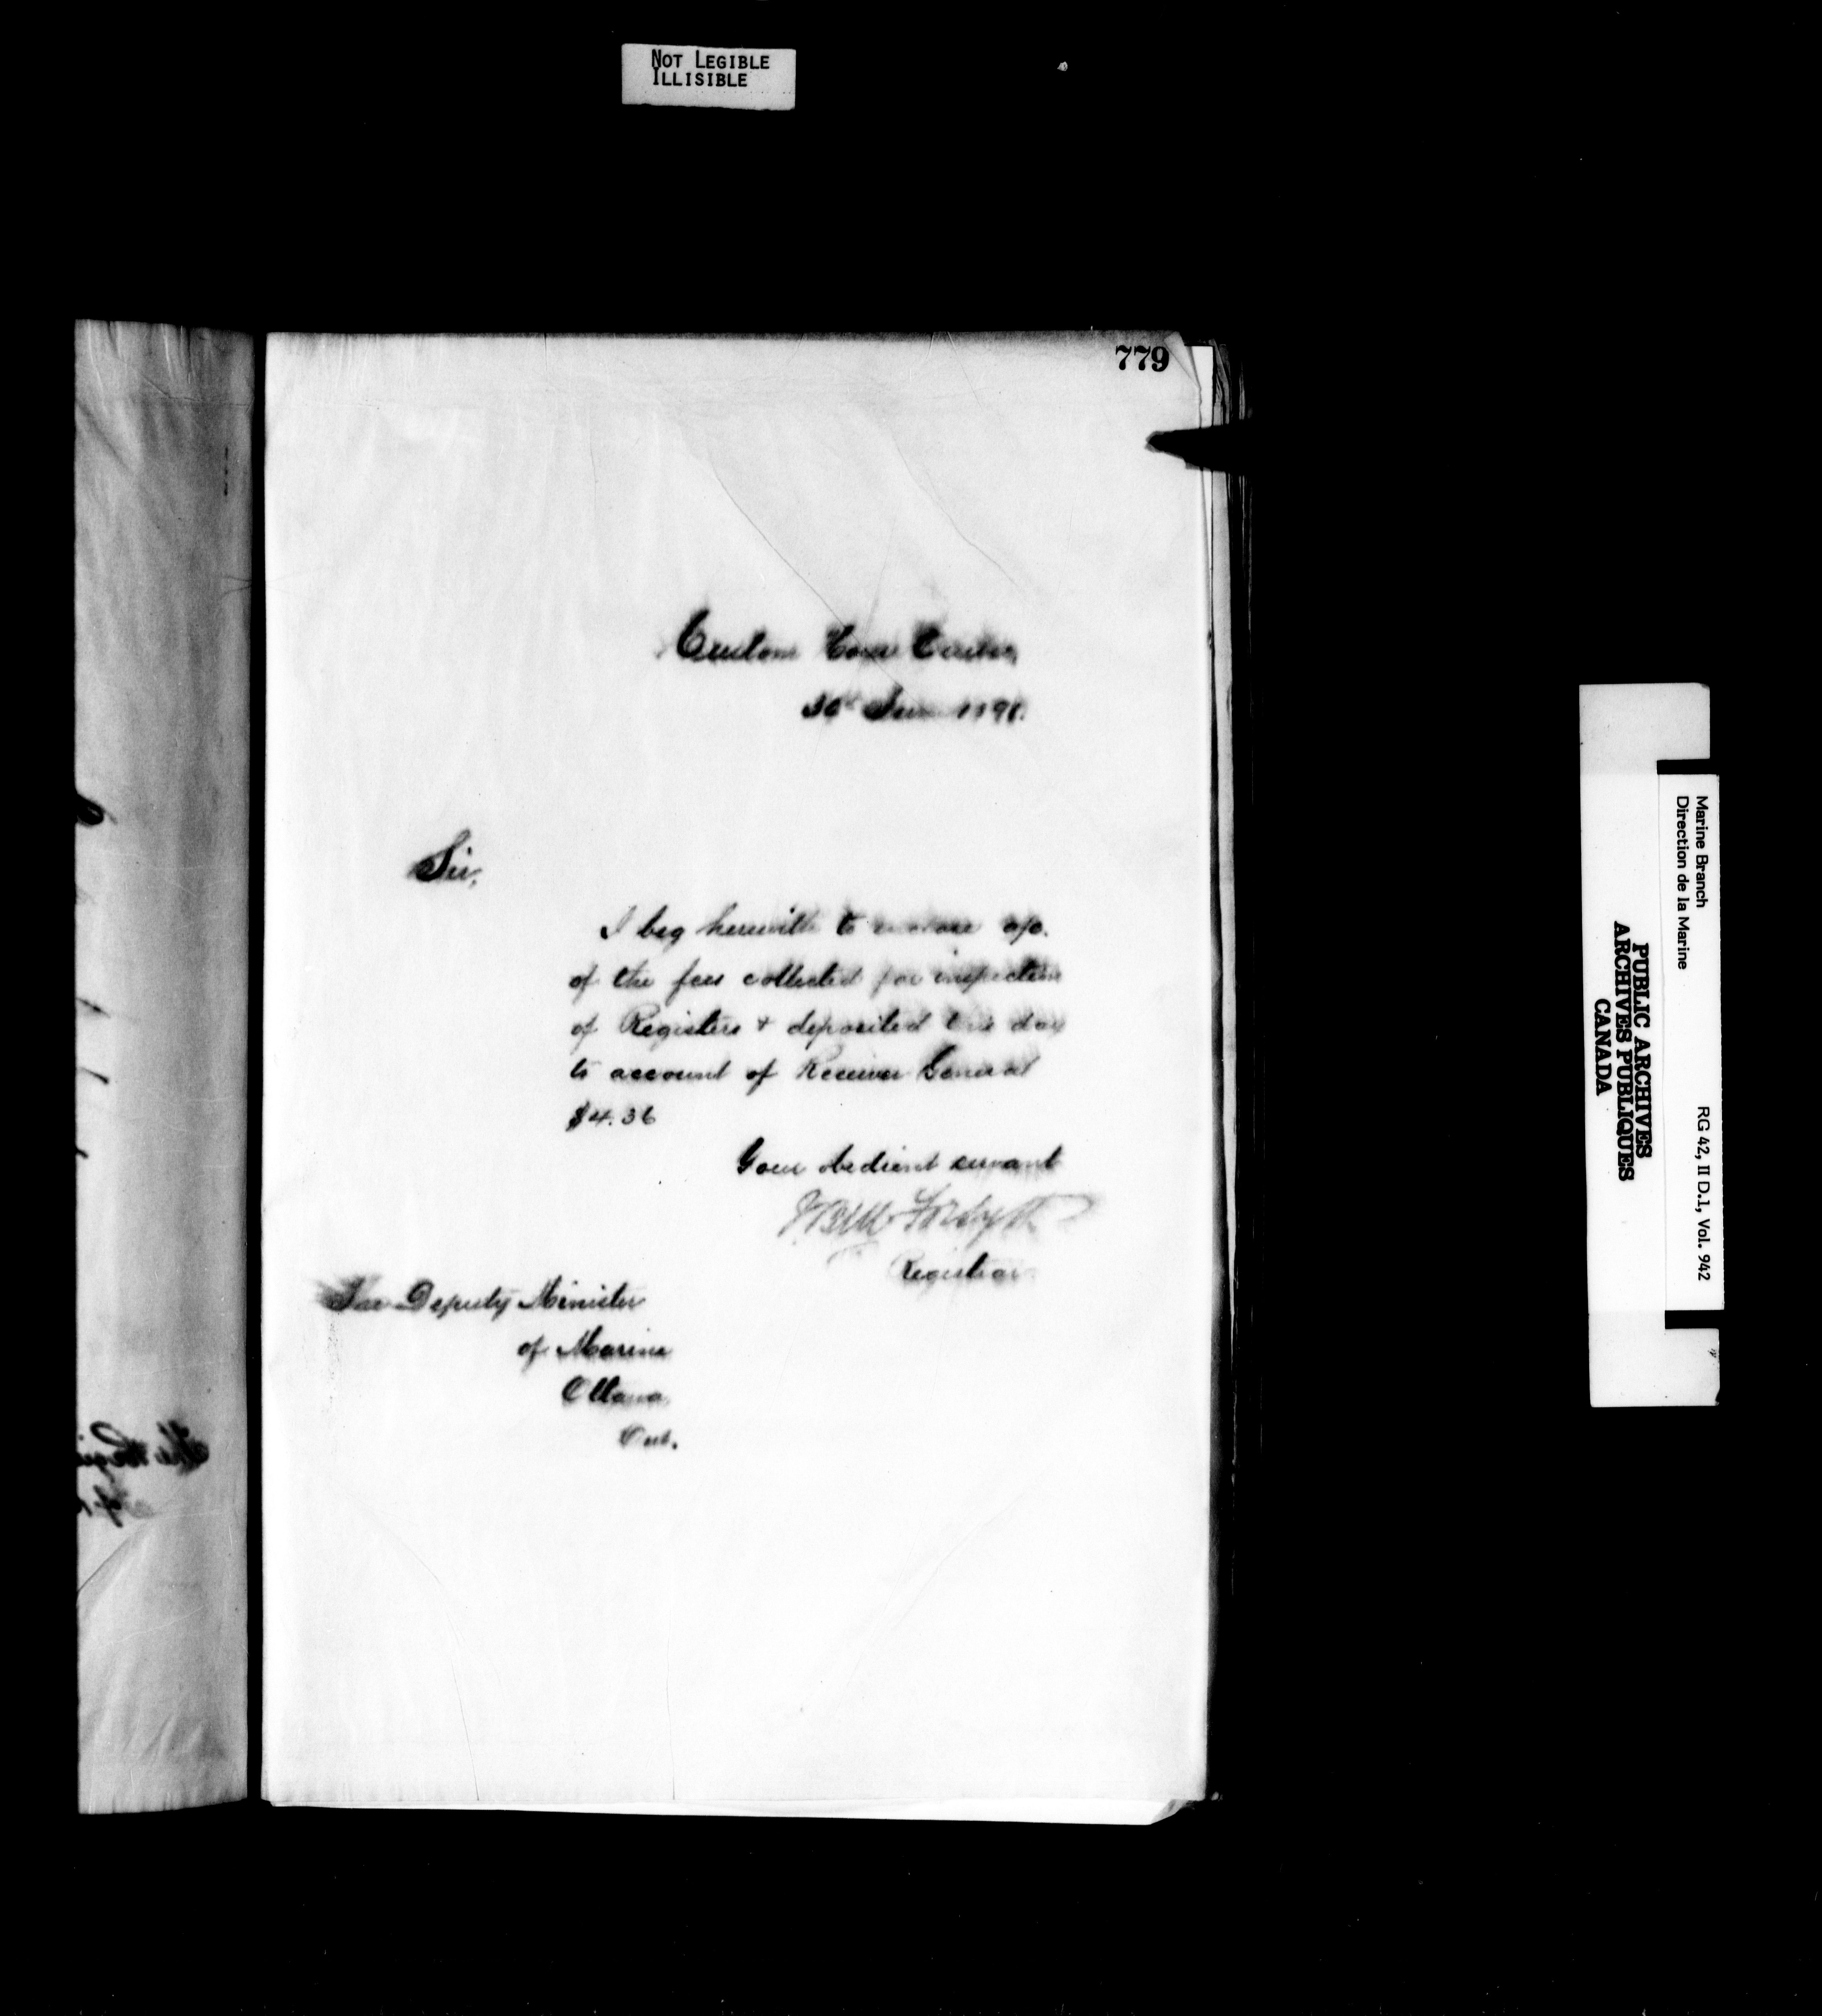 NOT LEGIBLE
ILLISIBLE
779
Custom House
30th June 189
Sir,
I beg herewith to enclose a/c.
of the fees collected for inspection
of Registers + deposited this day
to account of Receiver General
$4.36
Your obedient servant
Forsyth
Registrar
The Deputy Minister
of Marine
Ottawa
Ont.
The Regis
of
Marine Branch
Direction de la Marine
RG 42, II D.1, Vol. 942
PUBLIC ARCHIVES
ARCHIVES PUBLIQUES
CANADA